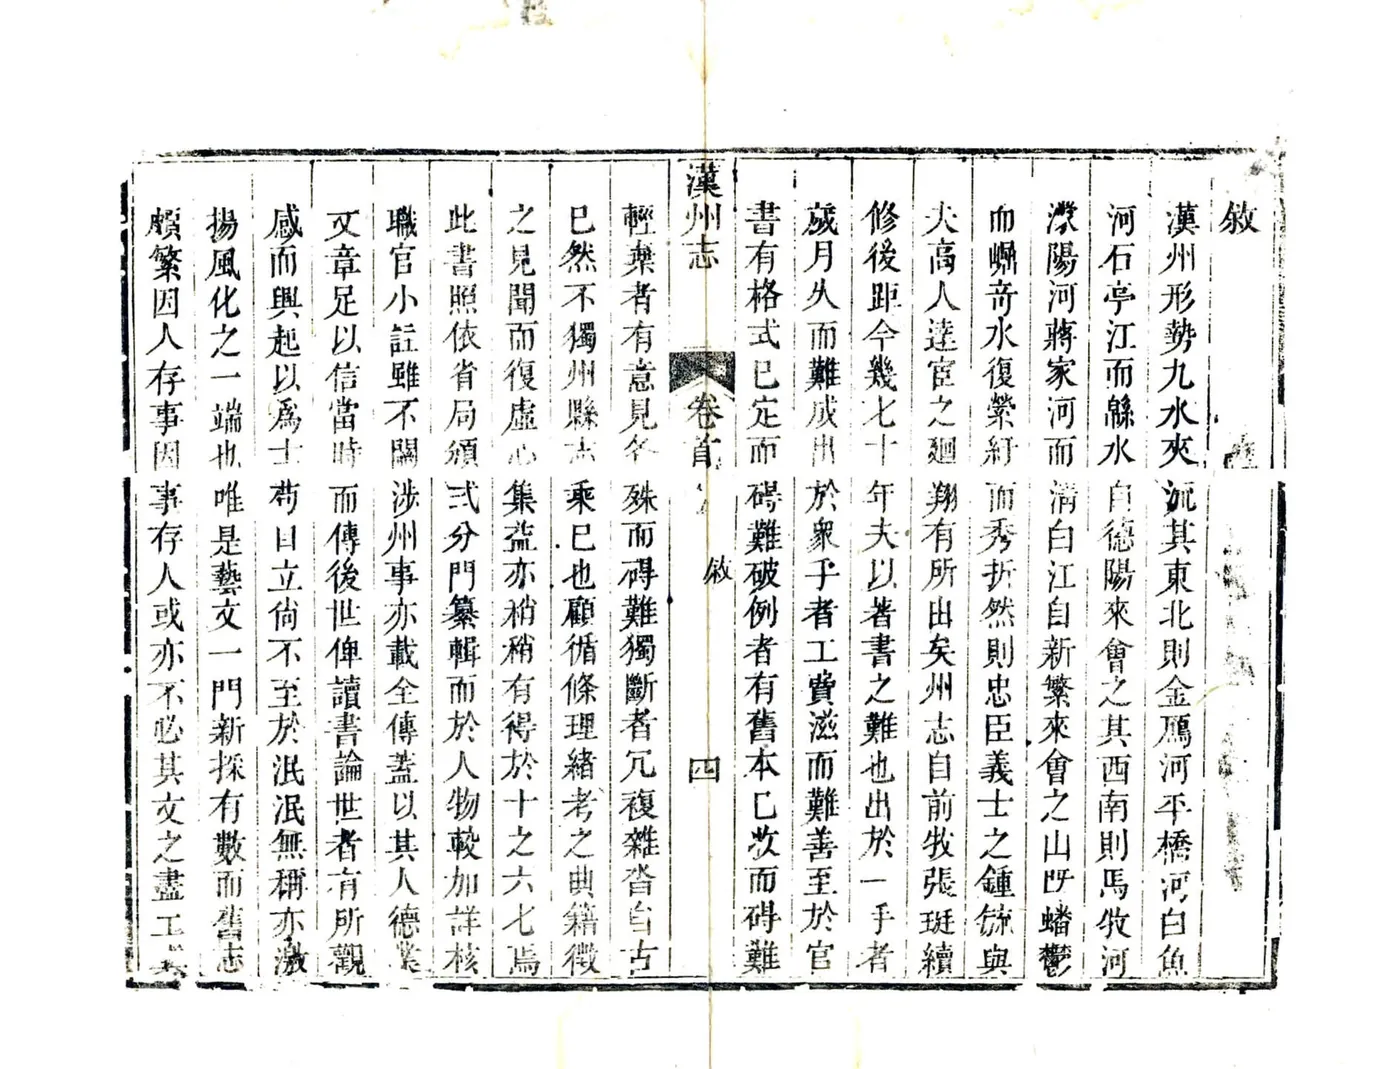 敘
漢州形勢九水夾流其東北則金鴈河平橋河白魚
河石亭江而緜水自德陽來會之其西南則馬牧河
濛陽河蔣家河而淸白江自新繁來會之山旣蟠鬱
而崛奇水復縈紆而秀折然則忠臣義士之鍾毓與
夫高人達宦之迴翔有所由矣州志自前牧張珽續
修後距今幾七十年夫以著書之難也出於一手者
歲月久而難成出於衆手者工費滋而難善至於官
書有格式已定而碍難破例者有舊本已收而碍難
漢州志 卷首 敘 四
輕棄者有意見各殊而碍難獨斷者冗複雜沓自古
已然不獨州縣志乘已也顧循條理緒考之典籍徵
之見聞而復虛心集益亦稍稍有得於十之六七焉
此書照依省局頒式分門纂輯而於人物較加詳核
職官小註雖不關涉州事亦載全傳蓋以其人德業
文章足以信當時而傳後世俾讀書論世者有所觀
感而興起以爲士苟自立尙不至於泯泯無稱亦激
揚風化之一端也唯是藝文一門新採有數而舊志
頗繁因人存事因事存人或亦不必其文之盡工